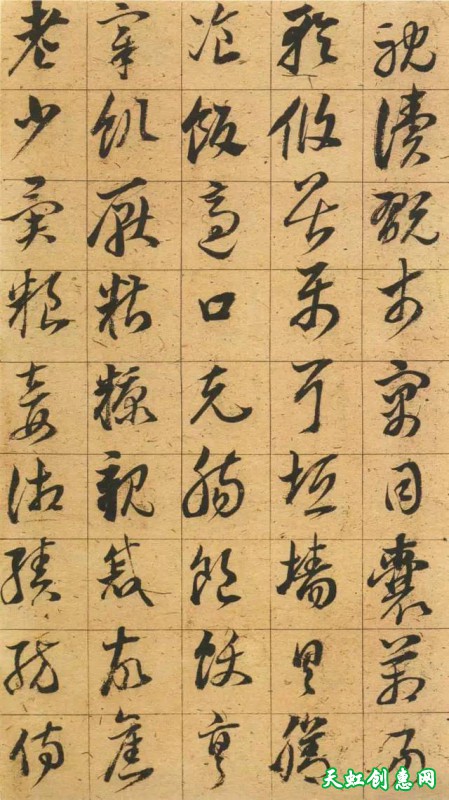 耽讀翫市寓目囊箱易
輶攸畏屬耳垣墻具膳
飡飯適口充腸飽飫亨
宰飢厭糟糠親戚故舊
老少異糧妾御績紡侍
天虹创惠网